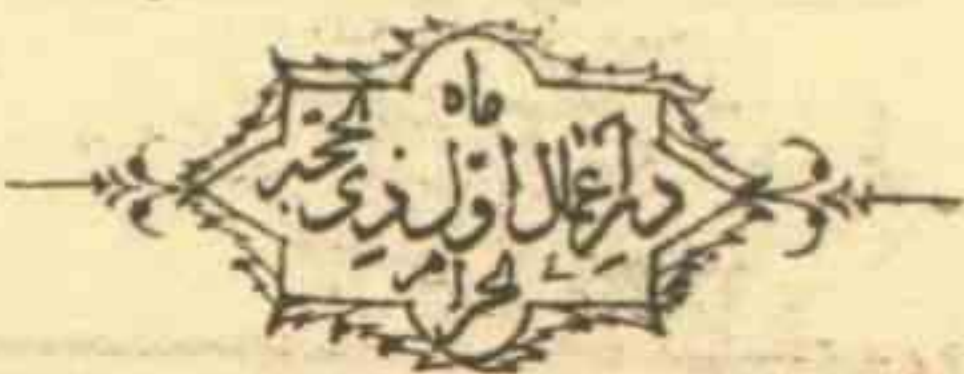 در اعمال اول ماه ذی الحجه
الحرام